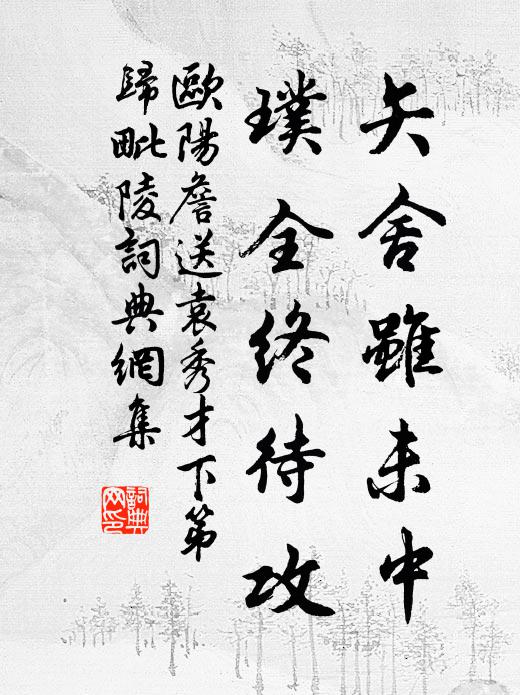 矢舍雖未中
璞全終待攻
歐陽詹送袁秀才下第
歸毗陵詞典網集
詞典
网印